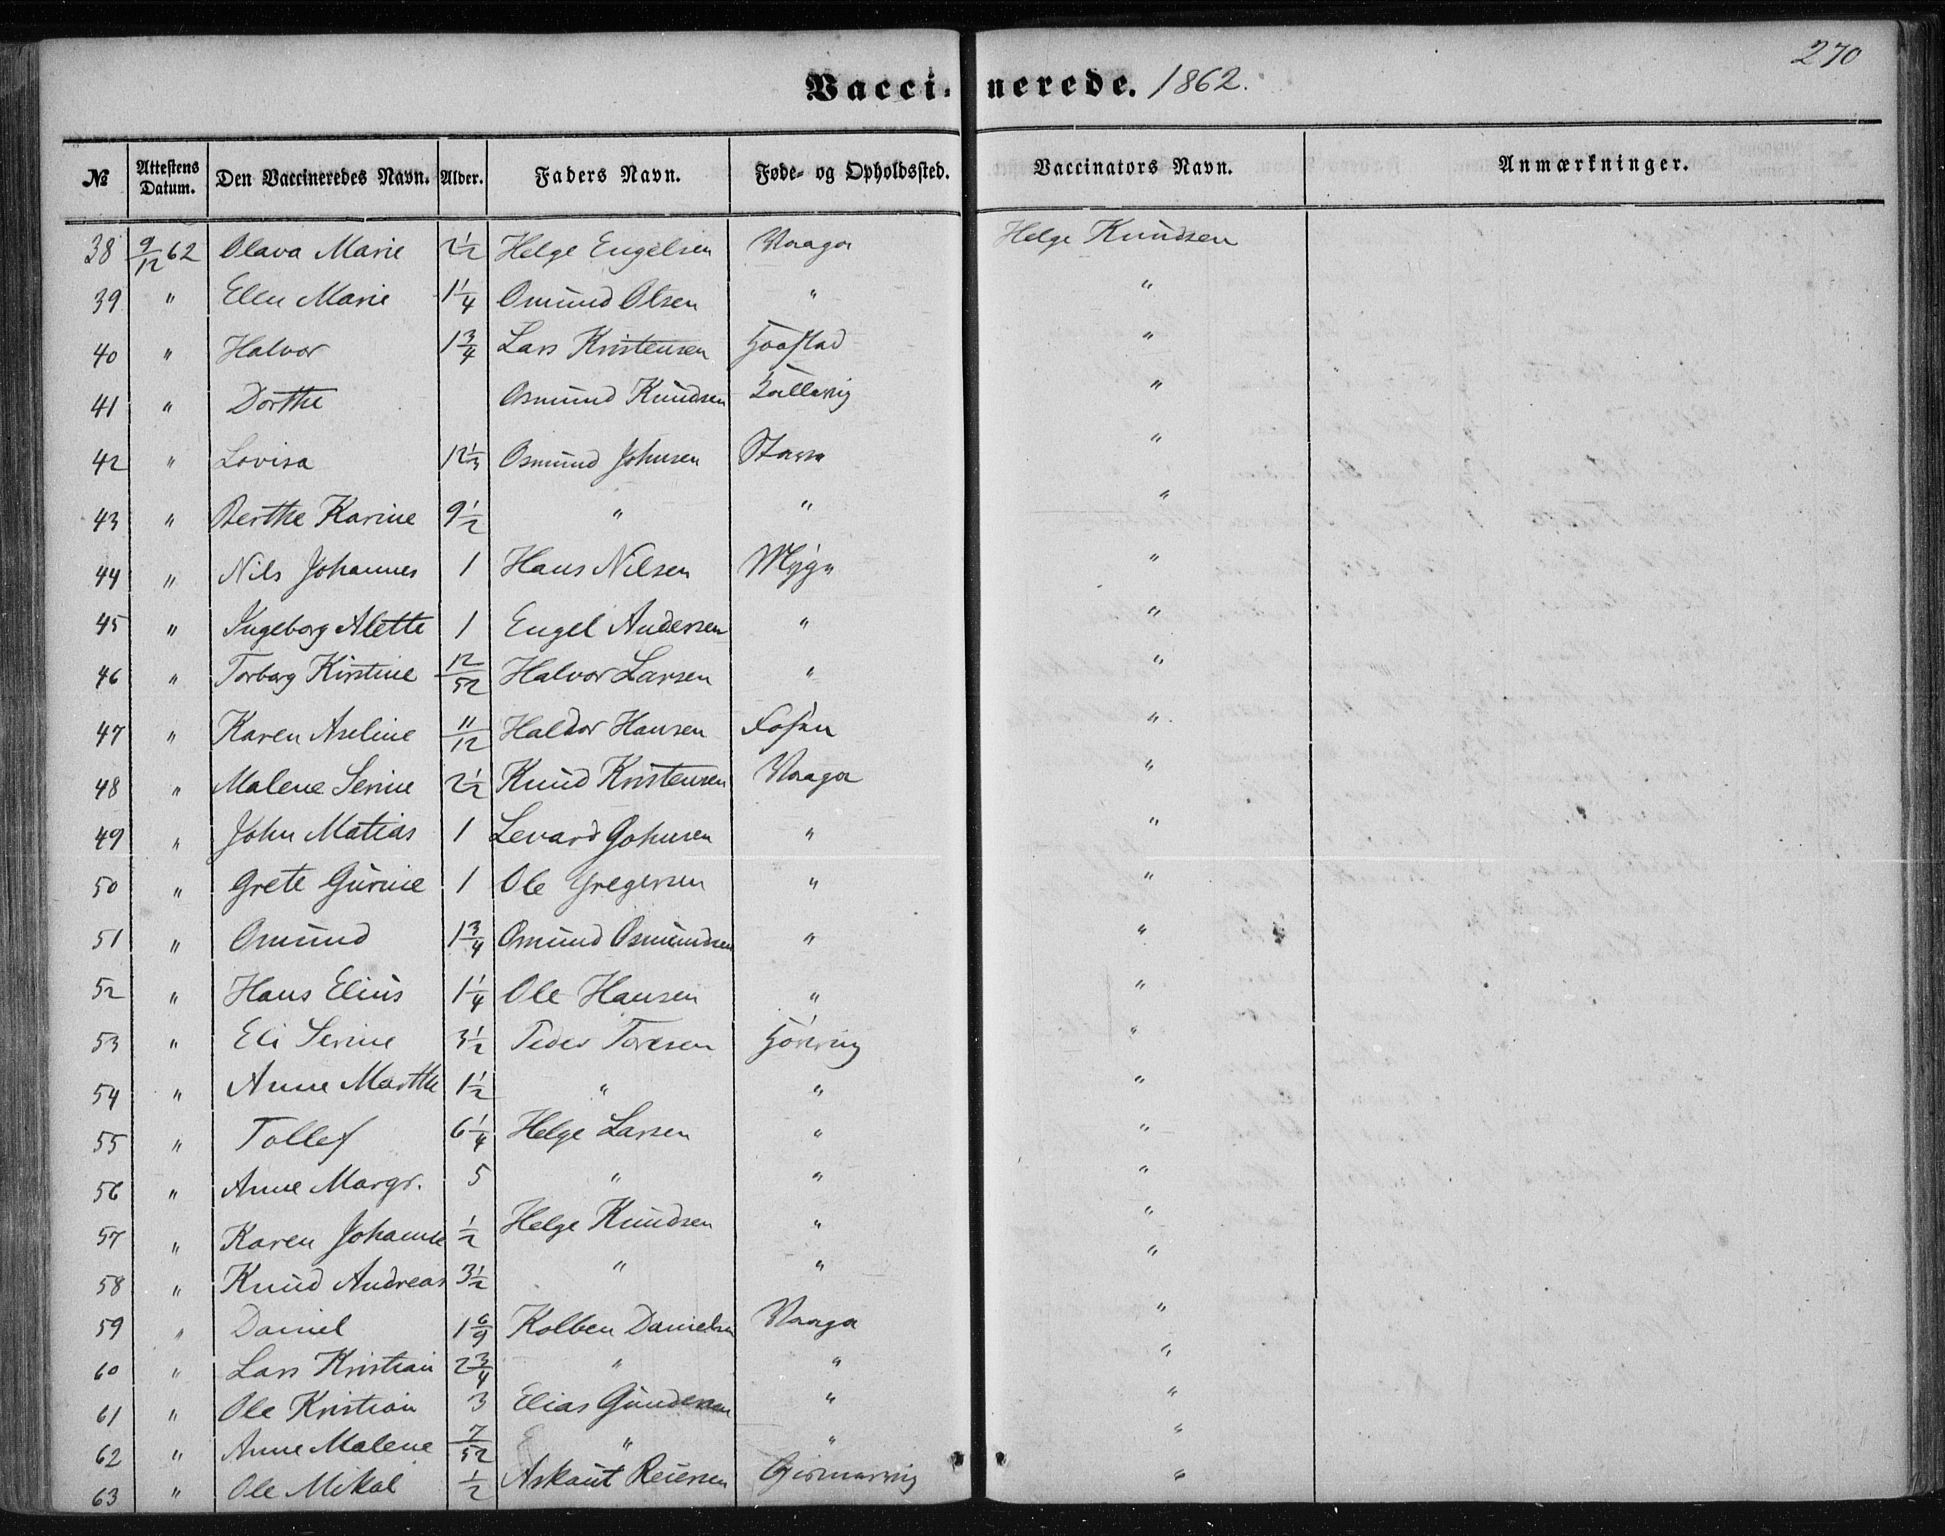 270
Vaccinerede. 1862.
№ Attestens Datum. Den Vaccineredes Navn. Alder. Faders Navn. Føde- og Opholdssted. Vaccinators Navn. Anmærkninger.
38 9/12 62 Olava Marie 2 1/2 Helge Engelsen Vaaga Helge Knudsen
39 " Elen Marie 1 1/4 Omund Olsen " "
40 " Halvor 1 3/4 Lars Kristensen "
41 " Dorthe Osmund Knudsen "
42 " Lovisa 12 1/3 Osmund Johnsen "
43 " Berthe Karine 9 1/2 " " "
44 " Nils Johannes 1 Hans Nilsen "
45 " Ingeborg Alette 1 Engel Andersen " "
46 " Torborg Kirstine 12/52 Halvor Larsen " "
47 " Karen Aseline 11/12 Haldor Hansen Fosen "
48 " Malene Serine 2 1/2 Knud Kristensen Vaaga "
49 " John Matias 1 Levard Johnsen " "
50 " Grete Gurine 1 Ole Gregersen " "
51 " Omund 1 3/4 Omund Osmundsen " "
52 " Hans Elius 1 1/4 Ole Hansen " "
53 " Eli Serine 3 1/2 Peder Toresen "
54 " Anne Marthe 1 1/2 " " "
55 " Tollef 6 1/4 Helge Larsen " "
56 " Anne Margr. 5 " " "
57 " Karen Johanne 1/2 Helge Knudsen " "
58 " Knud Andreas 3 1/2 " " "
59 " Daniel 1 6/9 Kolben Danielsen Vaaga "
60 " Lars Kristian 2 3/4 " " "
61 " Ole Kristian 3 Elias Gundersen " "
62 " Anne Malene 7/52 " " "
63 " Ole Mikal 1/2 Askaut Reiersen "